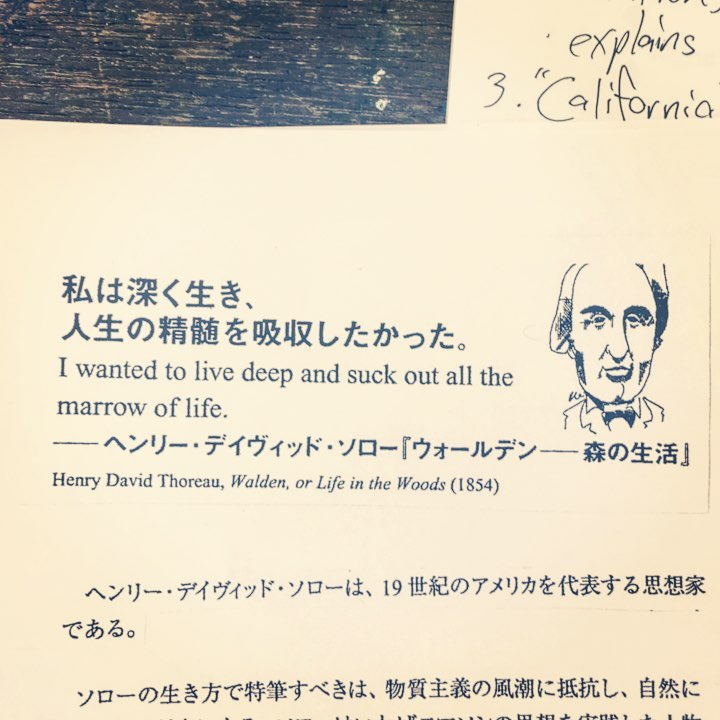 explains
3. "California
私は深く生き、
人生の精髄を吸収したかった。
I wanted to live deep and suck out all the
marrow of life.
── ヘンリー・デイヴィッド・ソロー『ウォールデン── 森の生活』
Henry David Thoreau, Walden, or Life in the Woods (1854)
ヘンリー・デイヴィッド・ソローは、19世紀のアメリカを代表する思想家
である。
ソローの生き方で特筆すべきは、物質主義の風潮に抵抗し、自然に